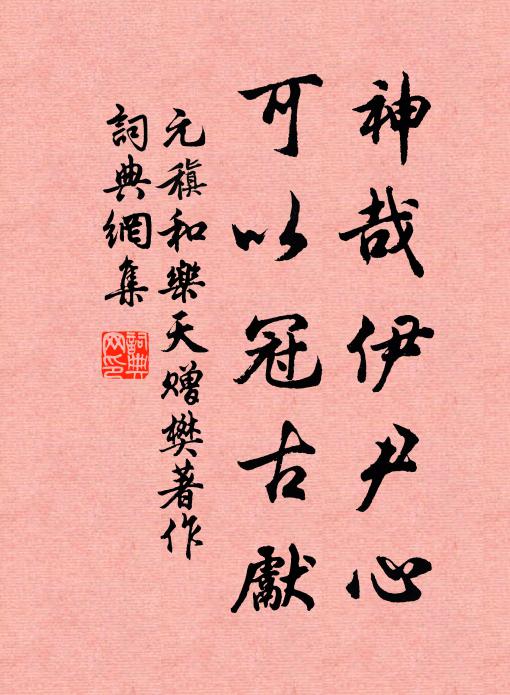 神哉伊尹心
可以冠古獻
元稹和樂天贈樊著作
詞典網集
詞典網印